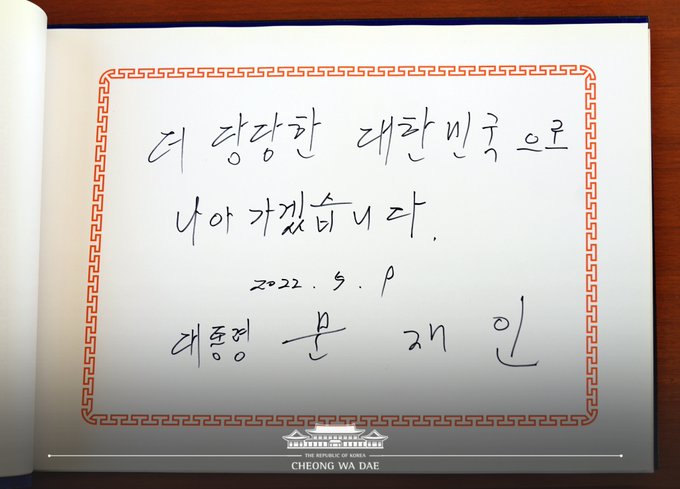 더 당당한 대한민국으로
나아가겠습니다.
2022. 5. 9
대통령 문 재 인
THE REPUBLIC OF KOREA
CHEONG WA DAE